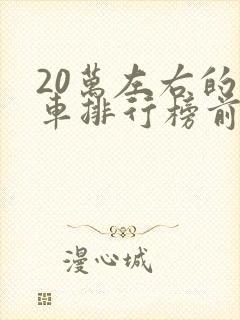 20萬左右的
車排行榜前
漫心城